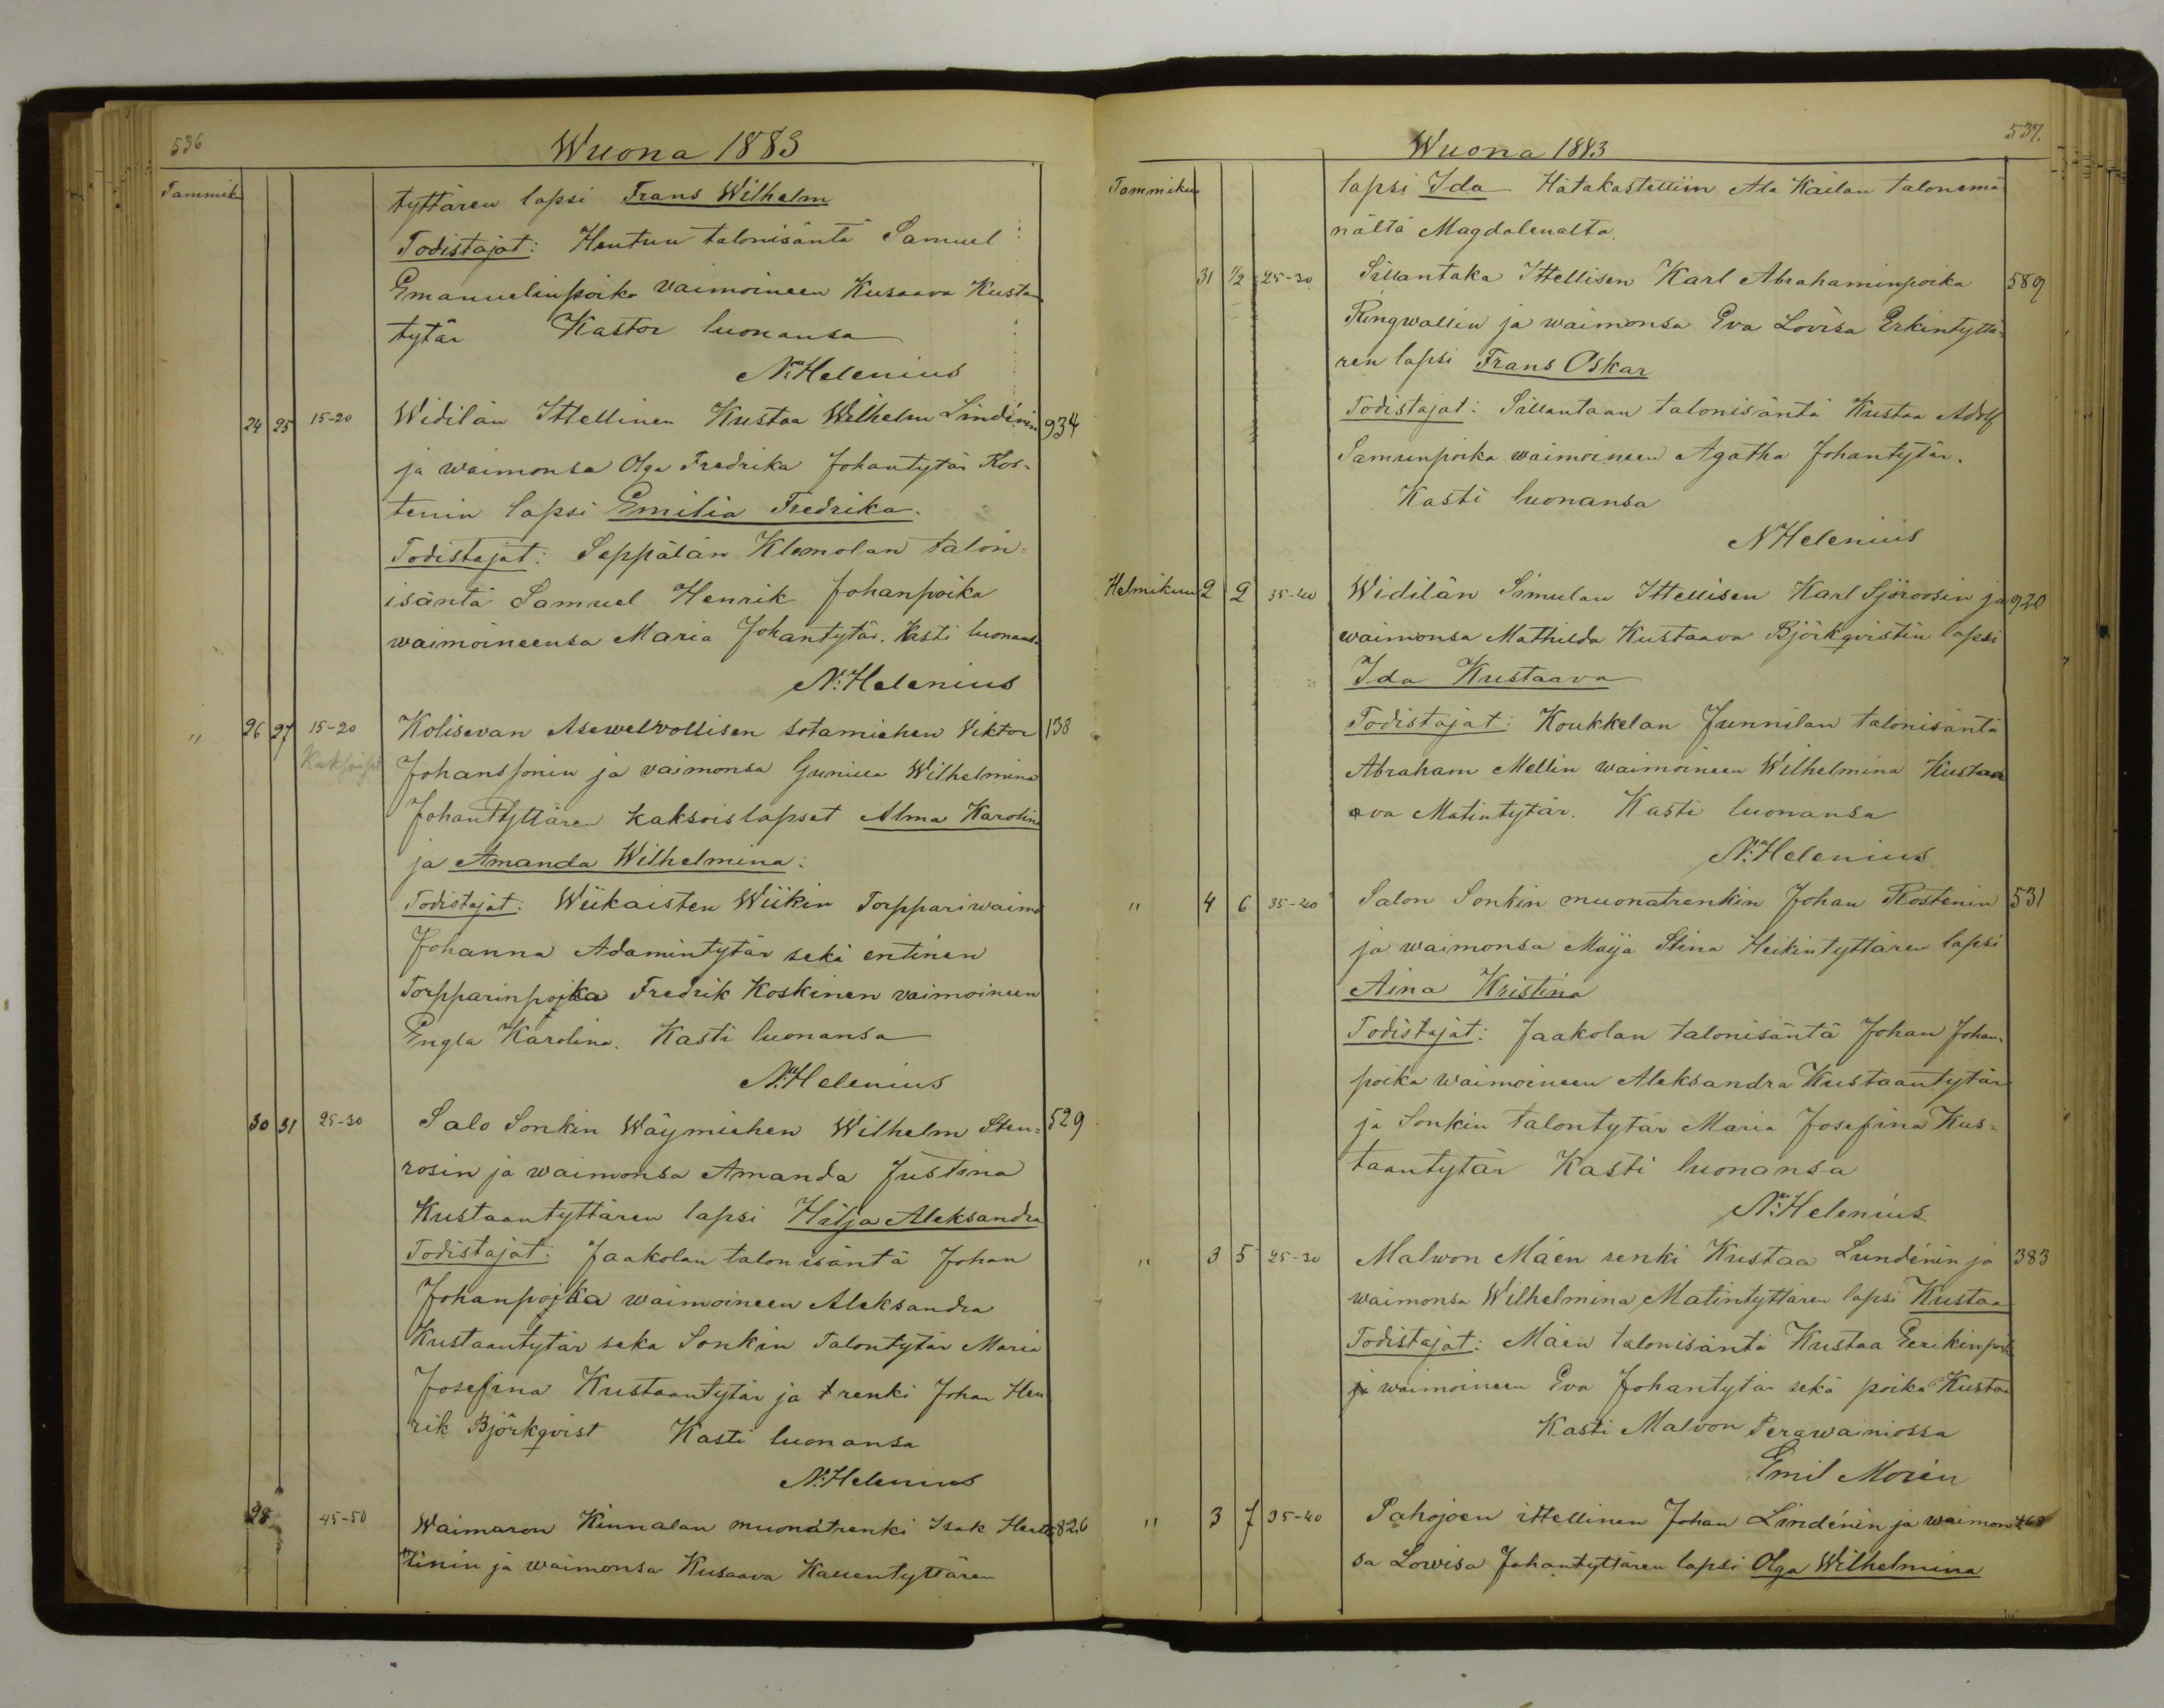 536
Wuona 1883
Tammiku
tyttären lapsi Frans Wilhelm
Todistajat: Hentun talonisäntä Samuel
Emanuelinpoika vaimoineen Kusaava Kusta
tytär Kastor luonansa
N. Helenius
24 25 15-20 Widilän Ittellinen Kustaa Wilhelm Lindénin 934
ja waimonsa Olga Fredrika Johantytär Ros-
tenin lapsi Emilia Fredrika.
Todistajat: Seppälän Klemolan talon=
isäntä Samuel Henrik Johanpoika
waimoineensa Maria Johantytär. Kasti luonansa
N. Helenius
" 26 27 15-20 Kolisevan Asewelvollisen sotamiehen Viktor 138
Johanssonin ja vaimonsa Gunilla Wilhelmina
Johantyttären kaksoislapset Alma Karolina
ja Amanda Wilhelmina:
Todistajat: Wiikaisten Wiikin Torppariwaimo
Johanna Adamintytär sekä entinen
Torpparinpojka Fredrik Koskinen vaimoineen
Engla Karolina. Kasti luonansa
N. Helenius
30 31 25-30 Salo Sonkin Wäymiehen Wilhelm Sten= 529
rosin ja waimonsa Amanda Justina
Kustaantyttären lapsi Hilja Aleksandra
Todistajat: Jaakolan talonisäntä Johan
Johanpojka waimoineen Aleksandra
Kustaantytär seka Sonkin Talontytär Maria
Josefina Kustaantytär ja renki Johan Hen
rik Björkqvist Kasti luonansa
N. Helenius
28 45-50 Waimaron Kinnalan muonatrenki Isak 826
tinin ja waimonsa Kusaava Kallentyttären
537.
Wuona 1883
Tammikuu
lapsi Ida Hätakastettiin Ala Kailan talonemä
nältä Magdalenalta.
31 1/2 25-30 Sillantaka Ittellisen Karl Abrahaminpoika 589
Ringwallin ja waimonsa Eva Lovisa Erkintyttä=
ren lapsi Frans Oskar
Todistajat: Sillantaan talonisäntä Kustaa Adolf
Samuinpoika waimoineen Agatha Johantytär.
Kasti luonansa
N Helenius
Helmikuu 2 2 35-40 Widilän Simulan Ittellisen Karl Sjöroosin ja 920
waimonsa Mathilda Kustaava Björkqvistin lapsi
Ida Kustaava
Todistajat: Koukkelan Junnilan talonisäntä
Abraham Mellin waimoineen Wilhelmina Kustaa
ava Matintytär. Kasti luonansa
N. Helenius
" 4 6 35-40 Salon Sonkin muonatrenkin Johan Rostenin 531
ja waimonsa Maija Stina Heikintyttären lapsi
Aina Kristina
Todistajat: Jaakolan talonisäntä Johan Johan=
poika waimoineen Aleksandra Kustaantytär
ja Sonkin talontytär Maria Josefina Kus=
taantytär Kasti luonansa
N. Helenius
" 3 5 25-30 Malwon Mäen renki Kustaa Lundénin ja 383
waimonsa Wilhelmina Matintyttären lapsi Kustaa
Todistajat: Mäen talonisäntä Kustaa Eerikinpoik
ja waimoineen Eva Johantytär sekä poika Kustaa
Kasti Malvon Perawainiossa
Emil Morén
" 3 7 35-40 Pahojoen ittellinen Johan Lindénin ja waimon
sa Lowisa Johantyttären lapsi Olga Wilhelmina